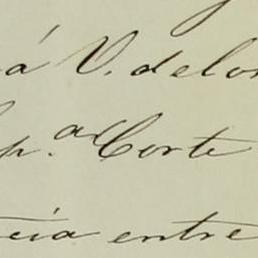 á V. de
p.ª Corte
cia entre